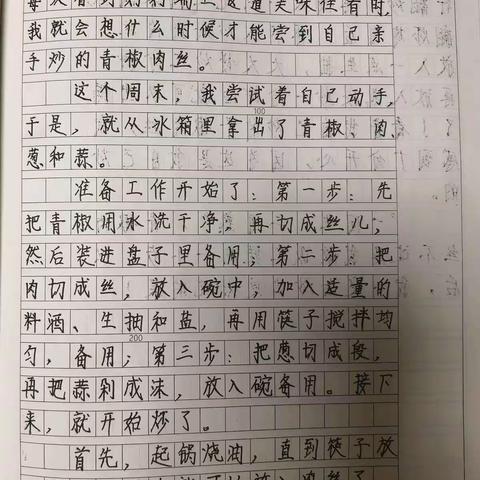 我就会想什么时候才能尝到自己亲
手炒的青椒肉丝。
这个周末，我尝试着自己动手，
100
于是，就从冰箱里拿出了青椒、肉、
葱和蒜。
准备工作开始了：第一步：先
把青椒用水洗干净，再切成丝儿，
然后装进盘子里备用；第二步：把
肉切成丝，放入碗中，加入适量的
料酒、生抽和盐，再用筷子搅拌均
200
匀，备用；第三步：把葱切成段，
再把蒜剁成沫，放入碗备用。接下
来，就开始炒了。
首先，起锅烧油，直到筷子放